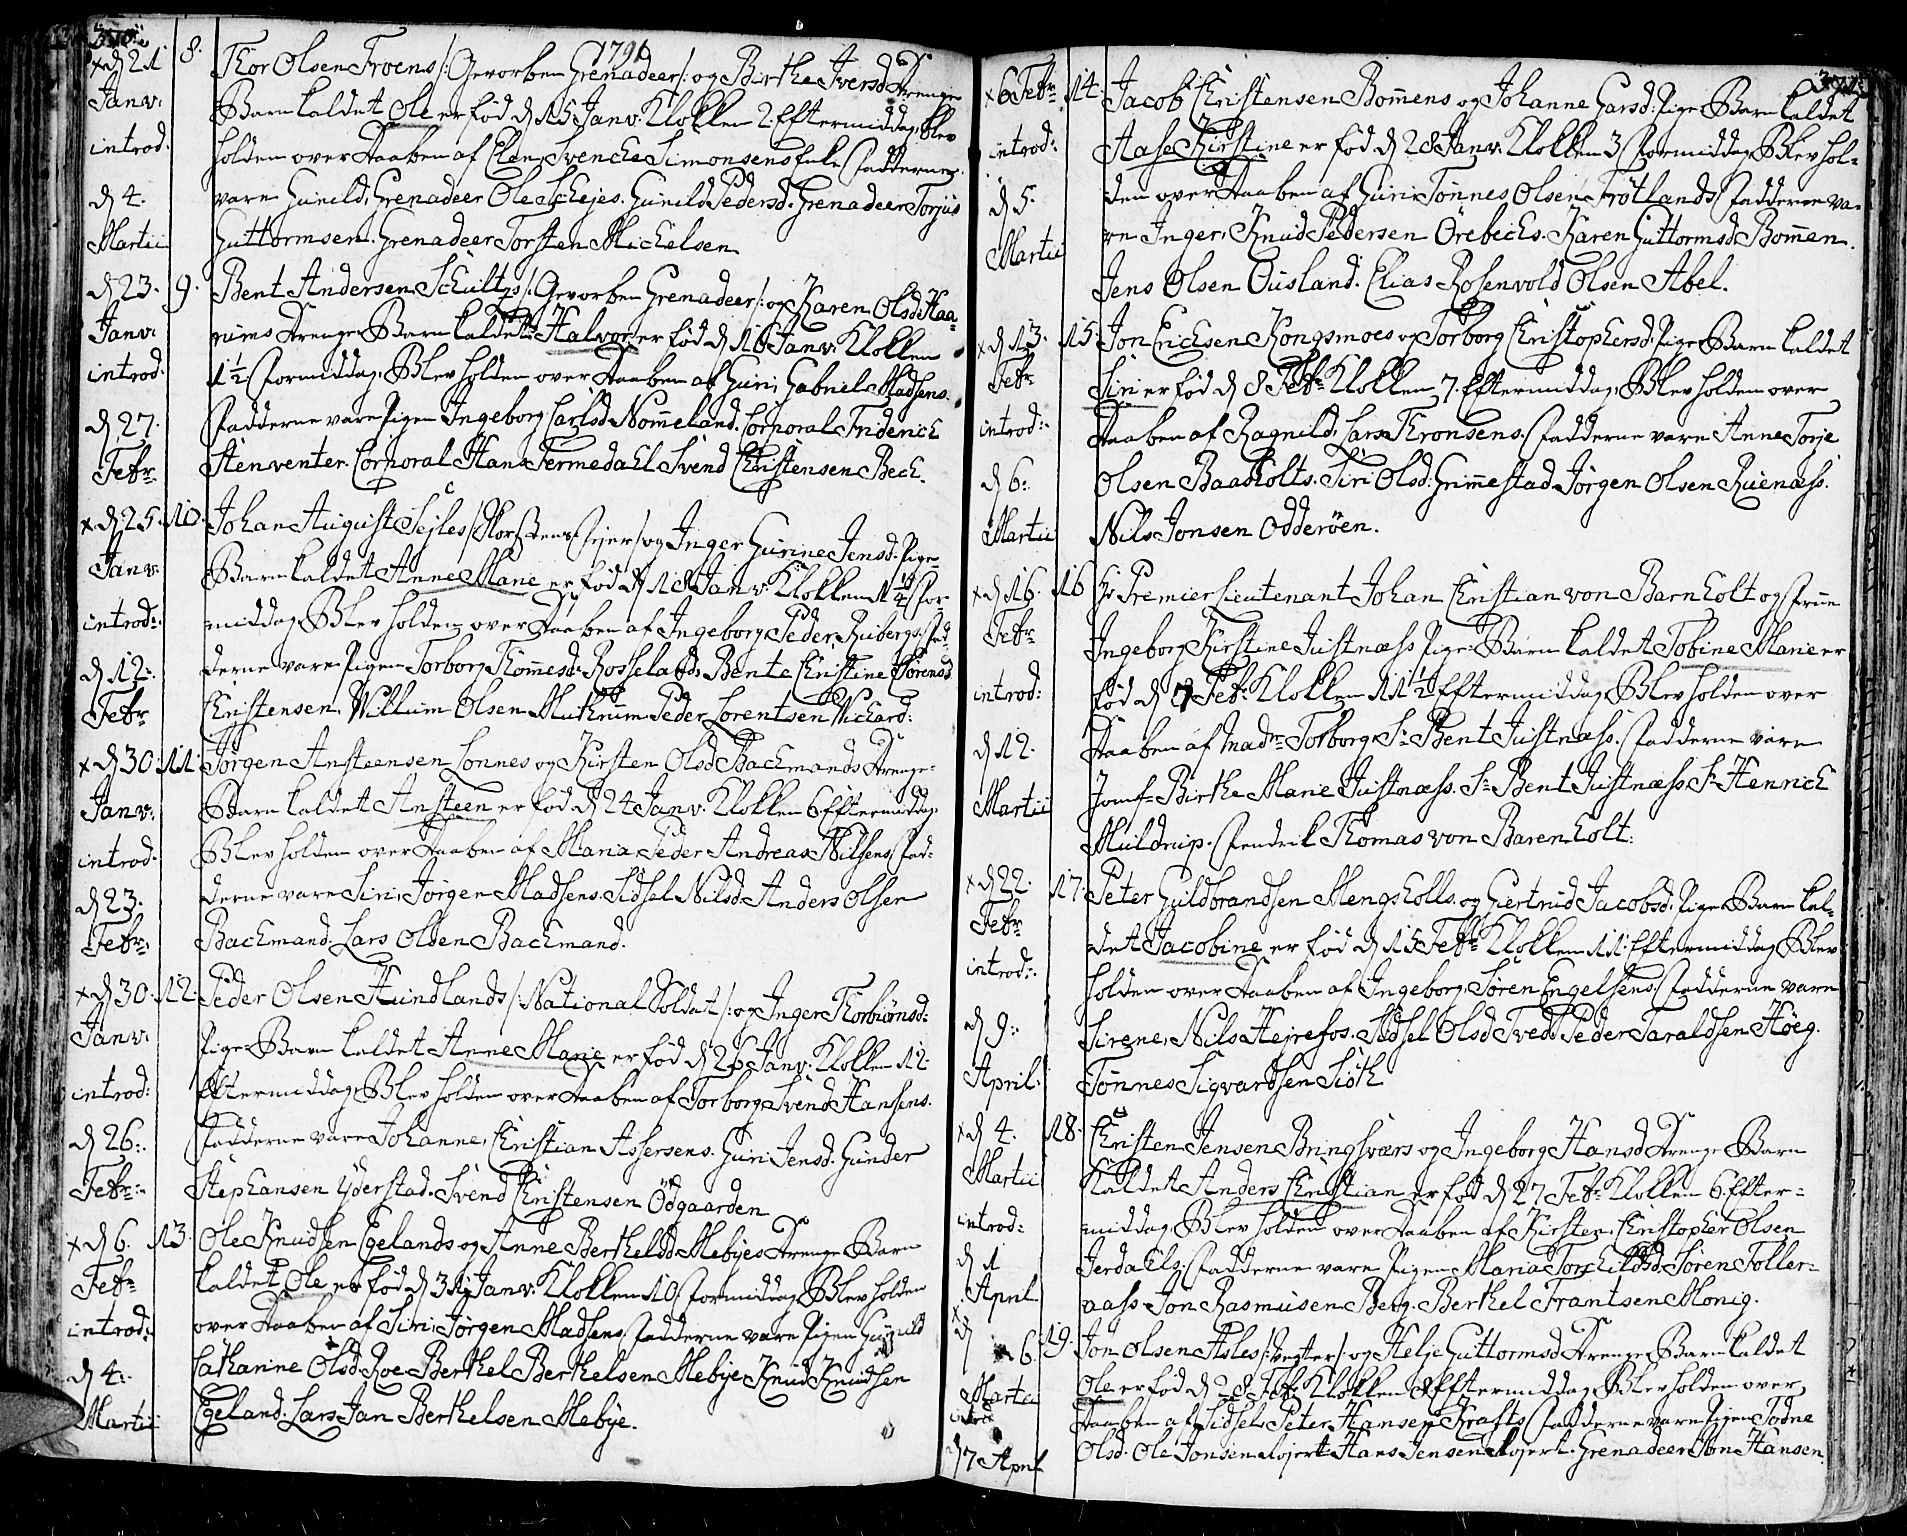 1791
× d 21 Janv: introd: d 4. Martii
8. Thor Olsen Froens /: Gevorben Grenadeer :/ og Birthe Iversd Drenge
Barn kaldet Ole er fød d 15 Janv: Klokken 2 Eftermiddag, Blev
holden over Daaben af Elen, Svencke Simonsens Enke. Fadderne
vare Gunild, Grenadeer Ole Schejes. Gunild Pedersd. Grenadeer Torjus
Guttormsen. Grenadeer Torsten Michelsen
d 23. Janv: introd: d 27. Febr:
9. Bent Andersen Schultzs /: Gevorben Grenadeer :/ og Karen Olsd Haa-
nums Drenge Barn kaldet Halvor er fød d 16 Janv: Klokken
1½ Formiddag, Blev holden over Daaben af Guri, Gabriel Madsens.
Fadderne vare Pigen Ingeborg Carlsd Nommeland. Corporal Friderich
Stenventer. Corporal Hans Fermedahl Svend Christensen Bech.
× d 25. Janv: introd: d 12. Febr
10. Johan August Sejles / Skorstens Fejer / og Inger Gurine Jensd. Pige-
Barn kaldet Anne Marie er fød d 18 Janv: Klokken For-
middag Blev holden over Daaben af Ingeborg, Peder Rubergs. Fad-
derne vare Pigen Torborg Thommesd. Rosselands. Bente Christine Sørensd
Christensen. Willum Olsen Peder Lorentsen Wichard:
× d 30. Janv: introd: d 23. Febr:
11. Jørgen Ansteensen Lonnes og Kirsten Olsd Bachmands Drenge-
Barn kaldet Ansteen er fød d 24 Janv: Klokken 6 Eftermiddag.
Blev holden over Daaben af Maria, Peder Andreas Nilsens. Fad-
derne vare Siri, Jørgen Madsens. Sidsel Nilsd. Anders Olsen
Bachmand. Lars Olsen Bachmand.
× d 30. Janv: introd: d 26. Febr:
12. Peder Olsen Hundlands /: National Soldat :/ og Inger Thorbiønsd:
Pige Barn kaldet Anne Marie er fød d 26 Janv: Klokken 12
Eftermiddag, Blev holden over Daaben af Torborg, Svend Hansens.
Fadderne vare Johanne, Christian Assersens. Guri Jensd. Gunder
Stephansen Yderstad. Svend Christensen Ødgaarden
× d 6. Febr introd: d 4. Martii
13. Ole Knudsen Egelands og Anne Bertheldsd Mebyes Drenge Barn
kaldet Ole er fød d 31 Janv: Klokken 10 Formiddag, Blev holden
over Daaben af Siri, Jørgen Madsens. Fadderne vare Pigen Gunild
Catharine Olsd Roe. Berthel Berthelsen Mebye. Knud Knudsen
Egeland. Lars Jan Berthelsen Mebye.
× 6 Febr introd: d 5. Martii
14. Jacob Christensen Bommens og Johanne Garsd. Pige Barn kaldet
Aase Kirstine er fød d 28 Janv: Klokken 3 Formiddag Blev hol-
den over Daaben af Guri, Tønnes Olsen Frøtlands. Fadderne va-
re Inger, Knud Pedersen Ørebechs. Karen Guttormsd Bommen.
Jens Olsen Ousland. Elias Rosenvold Olsen Abel.
× d 13. Febr introd: d 6. Martii
15. Jon Erichsen Kongsmoes og Torborg Christophersd. Pige Barn kaldet
Siri er fød d 8 Febr Klokken 7 Eftermiddag, Blev holden over
Daaben af Ragnild, Lars Thronsens. Fadderne vare Anne, Torje
Olsen Baasholts. Siri Olsd. Grimestad. Jørgen Olsen Ruenæss.
Nils Jonsen Odderøen.
× d 16. Febr introd: d 12. Martii
16 Hr Premier Lieutenant Johan Christian von Barnholt og Frue
Ingeborg Kirstine Justnæss Pige Barn kaldet Tobine Marie er
fød d 7 Feb: Klokken 11½ Eftermiddag, Blev holden over
Daaben af Madme Torborg, Sr Bent Justnæss. Fadderne vare
Jomf: Birthe Marie Justnæss. Sr Bent Justnæss. Sr Henrich
Muldrup. Fendrik Thomas von Barenholt:
× d 22. Febr introd: d 9. April
17. Peter Guldbrandsen Mengsholls og Giertrud Jacobsd. Pige Barn kal-
det Jacobine er fød d 15 Febr Klokken 11 Eftermiddag, Blev
holden over Daaben af Ingeborg, Søren Engelsens. Fadderne vare
Sirene, Nils Hejrefos. Sidsel Olsd Tved. Peder Taraldsen Høeg.
Tønnes Sigvardsen Siøth
× d 4. Martii introd: d 1 April
18. Christen Jensen Bringsværs og Ingeborg Hansd Drenge Barn
Kaldet Anders Christian er fød d 27 Feb: Klokken 6 Efter-
middag, Blev holden over Daaben af Kirsten, Christopher Olsen
Jerdahls. Fadderne vare Pigen Maria Torchildsd. Søren Foller-
aass Jon Rasmusen Berg. Berthel Frantsen Monig.
× d 6. Martii introd d 7 April
19. Jon Olsen Asles /: Vegter :/ og Helje Guttormsd Drenge Barn kaldet
Ole er fød d 28 Feb: Klokken 8 Eftermiddag, Blev holden over
Daaben af Sidsel, Peter Hansen Krafts. Fadderne vare Pigen Todne
Olsd. Ole Jonsen Røjert. Hans Jensen Røjert. Grenadeer Jon Hansen